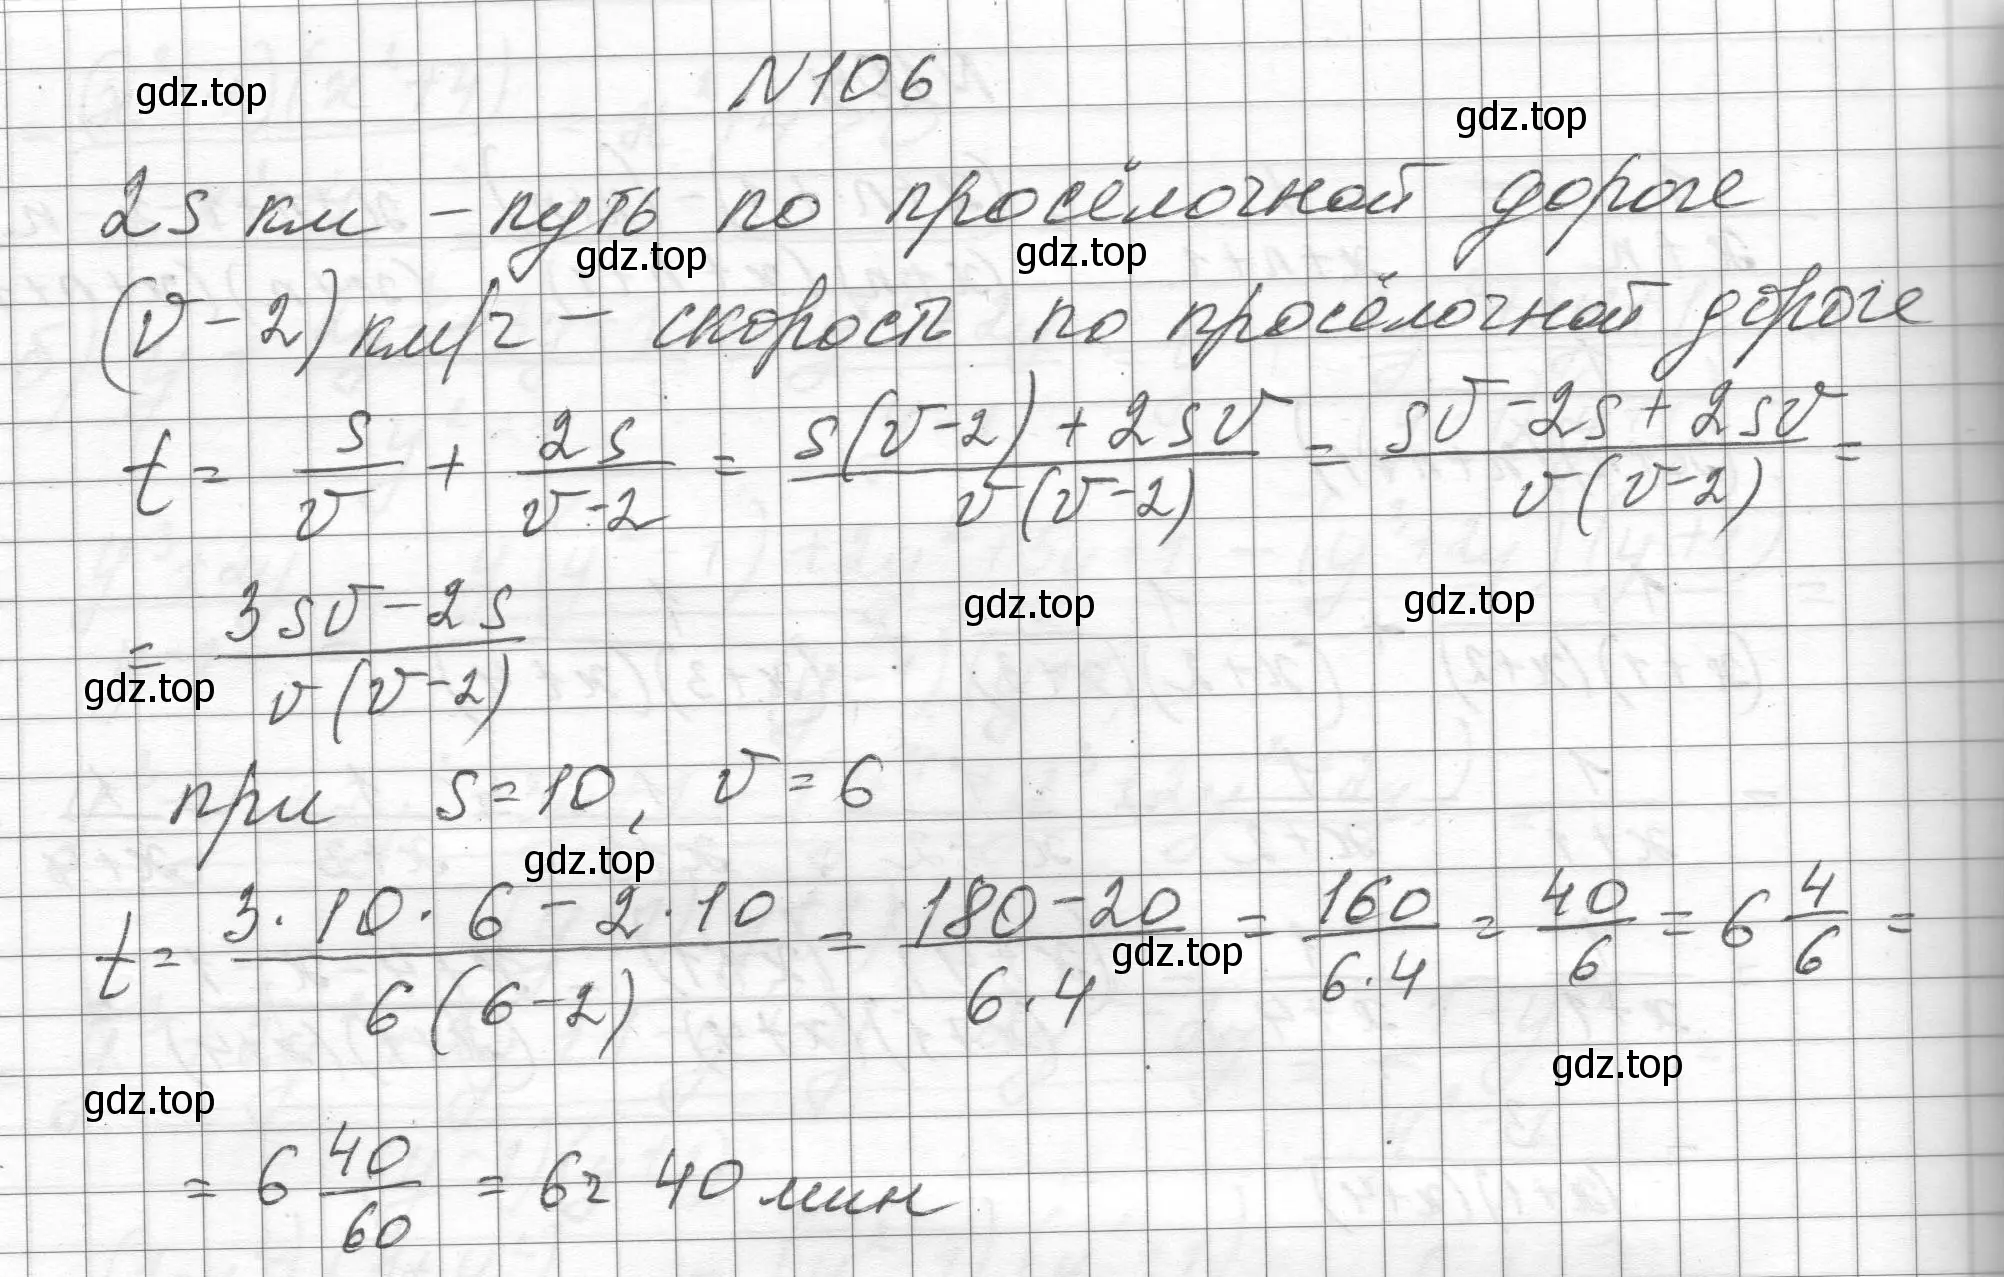 N106
gdz.top
gdz.top
2s км – путь по просёлочной дороге
gdz.top
gdz.top
(v-2) км/ч – скорость по просёлочной дороге
t = s/v + 2s/(v-2) = (s(v-2)+2sv)/(v(v-2)) = (sv-2s+2sv)/(v(v-2)) =
gdz.top
gdz.top
= (3sv-2s)/(v(v-2))
gdz.top
при s=10, v=6
gdz.top
t = (3·10·6-2·10)/(6(6-2)) = (180-20)/(6·4) = 160/(6·4) = 40/6 = 6 4/6 =
gdz.top
gdz.top
gdz.top
= 6 40/60 = 6ч 40 мин